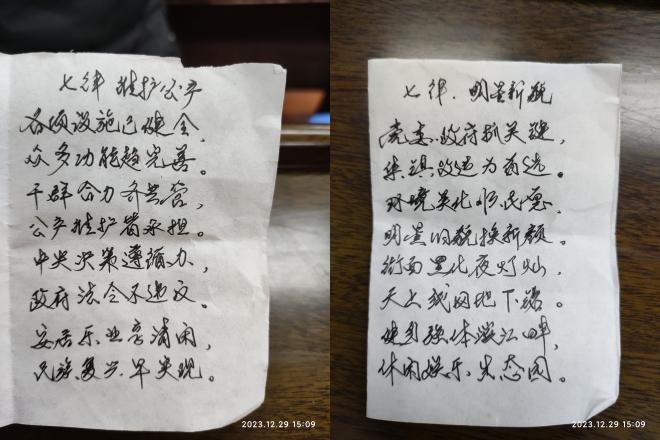 七律 维护公产
各项设施已健全，
众多功能趋完善。
干群合力齐共管，
公产维护省承担。
中央决策遵循办，
政府法令不违反。
安居乐业享清闲，
民族复兴早实现。
2023.12.29 15:09
七律.明星新貌
党委.政府抓关键，
集镇改造为首选。
环境美化顺民愿，
明星旧貌换新颜。
街面黑化夜灯灿，
天上线网地下端。
健身强体 江畔，
休闲娱乐生态园。
2023.12.29 15:09